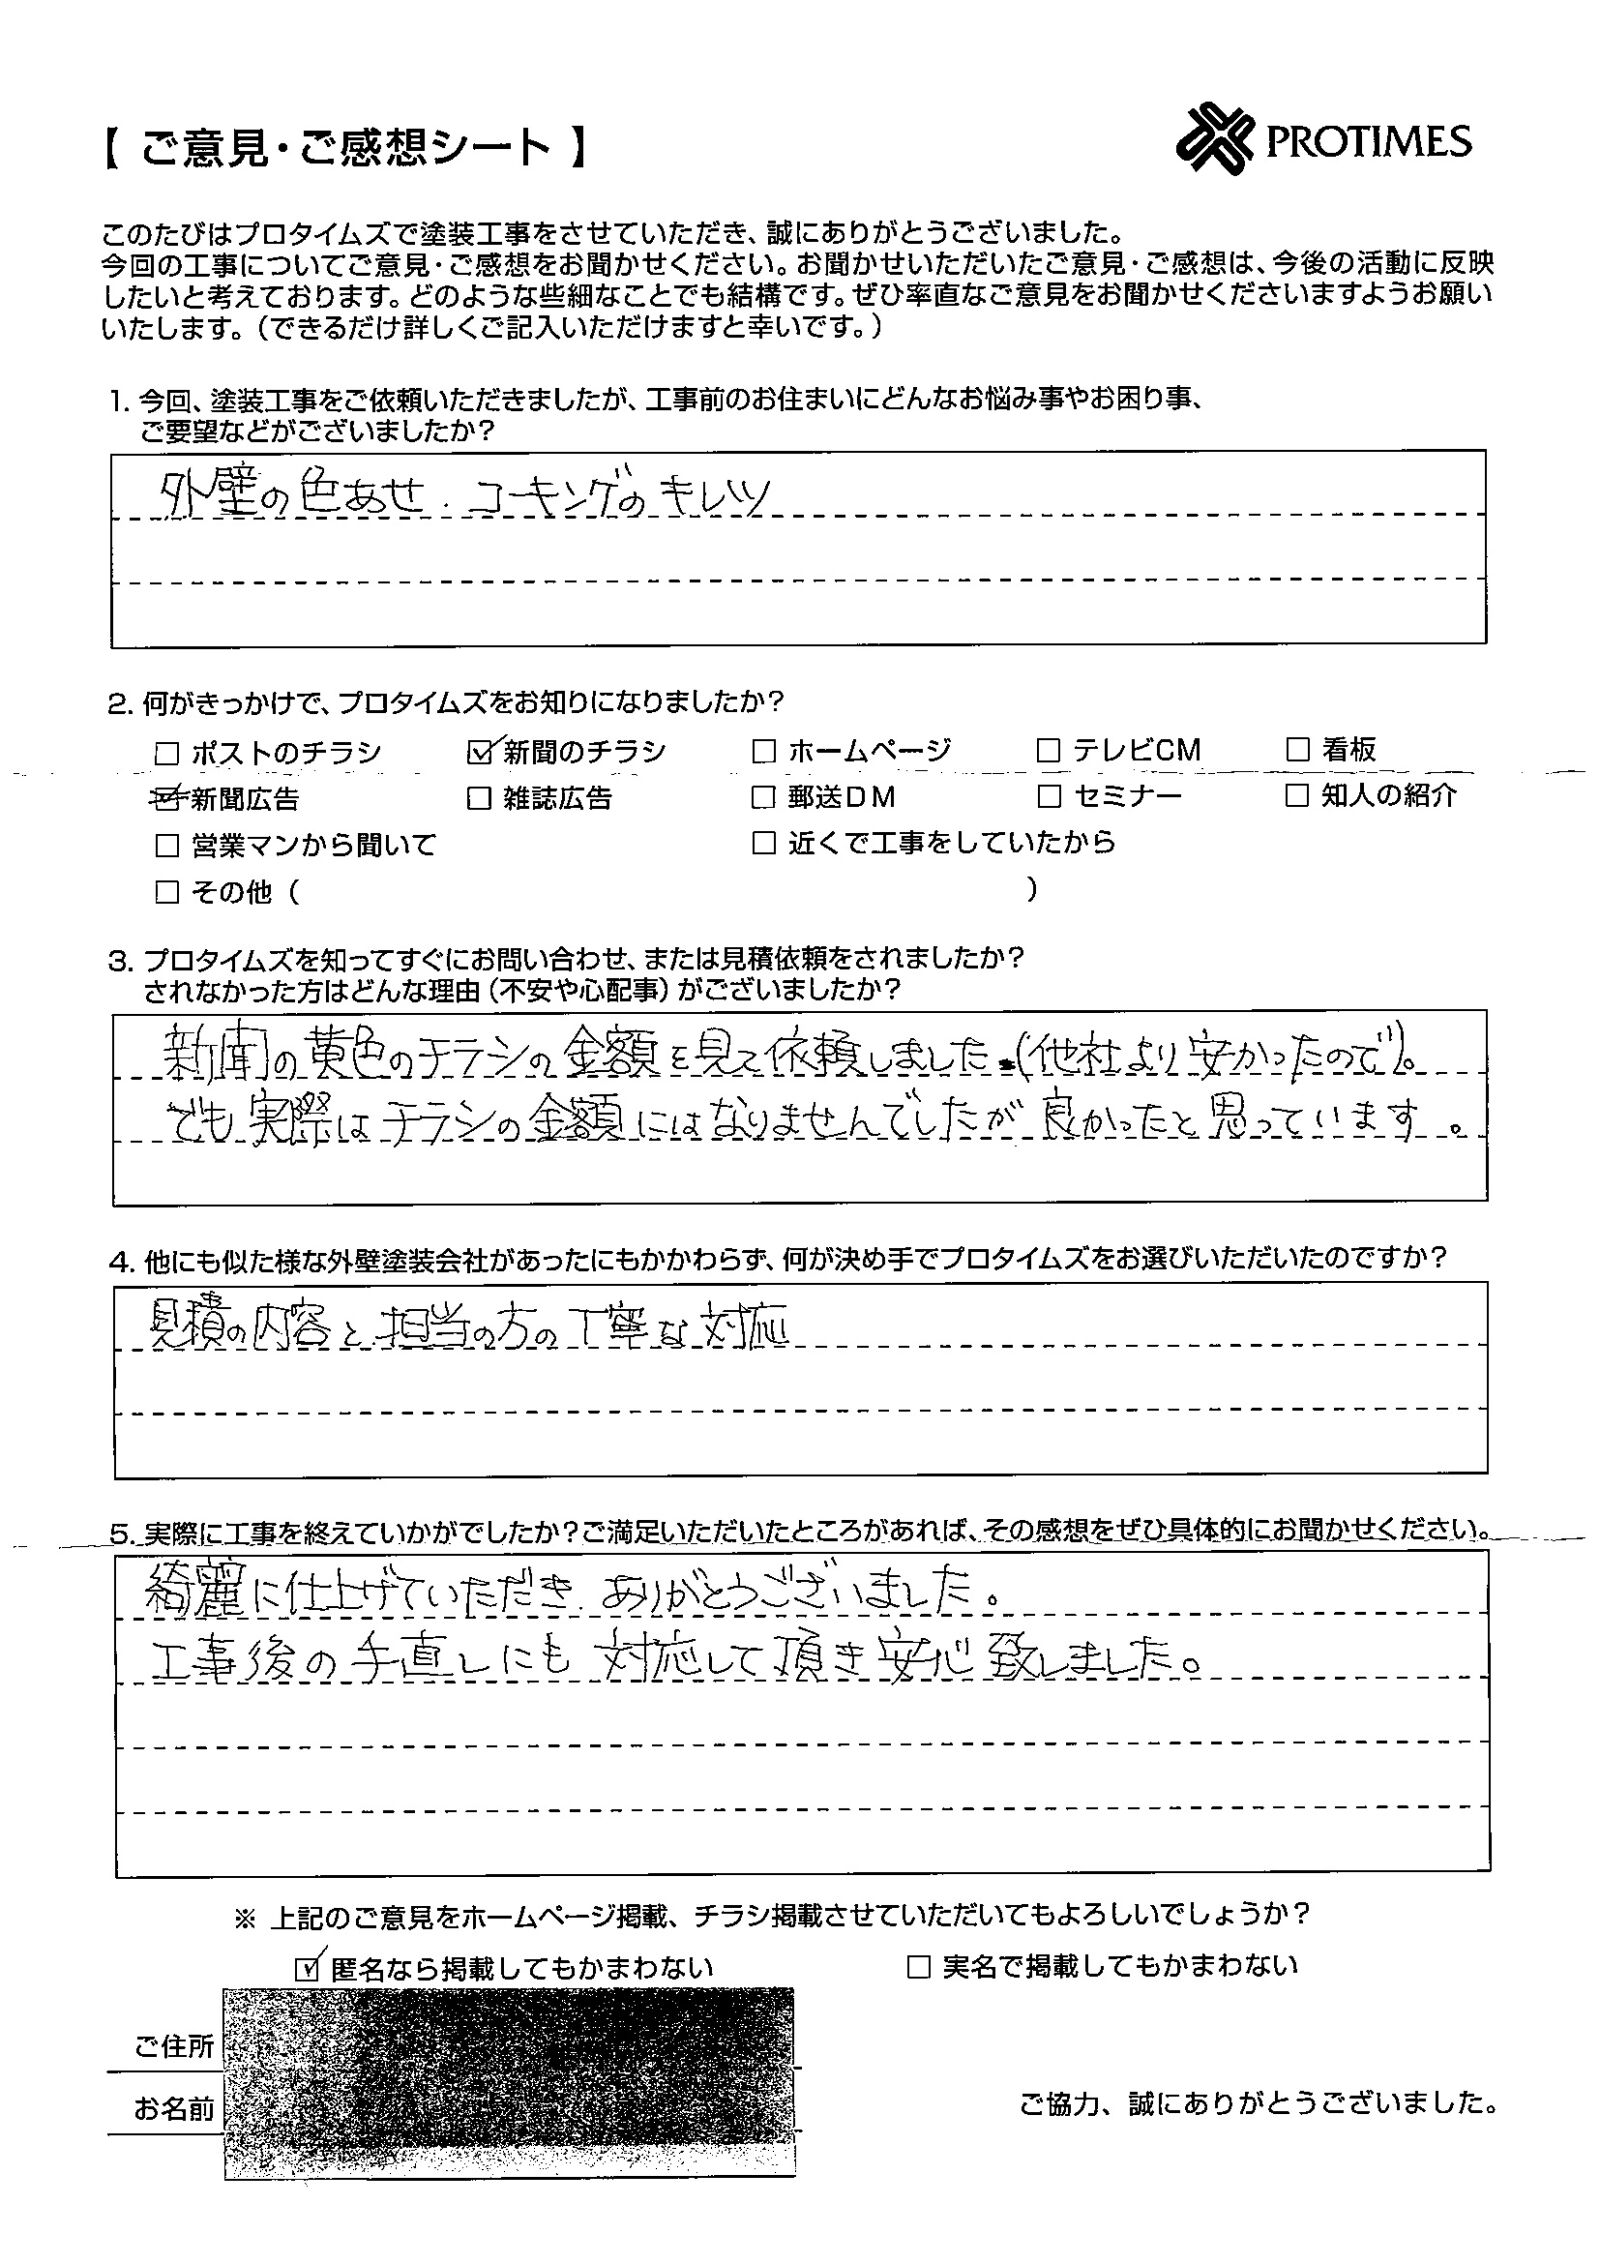 【 ご意見・ご感想シート 】
PROTIMES
このたびはプロタイムズで塗装工事をさせていただき、誠にありがとうございました。
今回の工事についてご意見・ご感想をお聞かせください。お聞かせいただいたご意見・ご感想は、今後の活動に反映
したいと考えております。どのような些細なことでも結構です。ぜひ率直なご意見をお聞かせくださいますようお願い
いたします。（できるだけ詳しくご記入いただけますと幸いです。）
1. 今回、塗装工事をご依頼いただきましたが、工事前のお住まいにどんなお悩み事やお困り事、
ご要望などがございましたか？
外壁の色あせ．コーキングのキレツ
2. 何がきっかけで、プロタイムズをお知りになりましたか？
□ ポストのチラシ ☑ 新聞のチラシ □ ホームページ □ テレビCM □ 看板
☑ 新聞広告 □ 雑誌広告 □ 郵送DM □ セミナー □ 知人の紹介
□ 営業マンから聞いて □ 近くで工事をしていたから
□ その他（ ）
3. プロタイムズを知ってすぐにお問い合わせ、または見積依頼をされましたか？
されなかった方はどんな理由（不安や心配事）がございましたか？
新聞の黄色のチラシの金額を見て依頼しました。（他社より安かったので）。
でも実際はチラシの金額にはなりませんでしたが良かったと思っています。
4. 他にも似た様な外壁塗装会社があったにもかかわらず、何が決め手でプロタイムズをお選びいただいたのですか？
見積の内容と担当の方の丁寧な対応
5. 実際に工事を終えていかがでしたか？ご満足いただいたところがあれば、その感想をぜひ具体的にお聞かせください。
綺麗に仕上げていただき．ありがとうございました。
工事後の手直しにも対応して頂き安心致しました。
※ 上記のご意見をホームページ掲載、チラシ掲載させていただいてもよろしいでしょうか？
☑ 匿名なら掲載してもかまわない □ 実名で掲載してもかまわない
ご住所
お名前
ご協力、誠にありがとうございました。